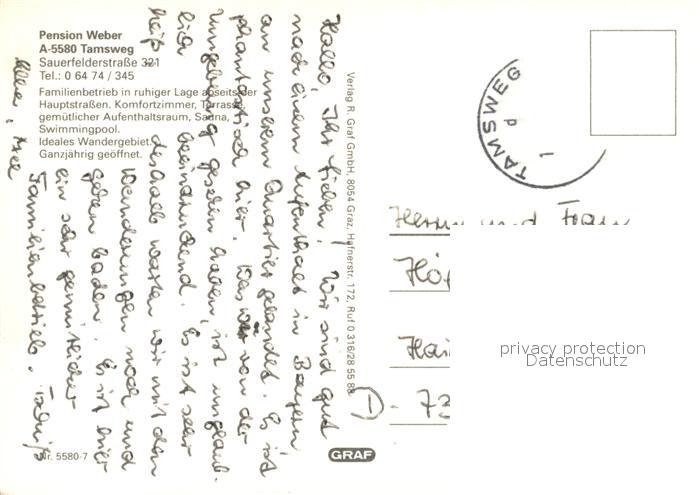 Pension Weber
A-5580 Tamsweg
Sauerfelderstraße 321
Tel.: 0 64 74 / 345
Familienbetrieb in ruhiger Lage abseits der
Hauptstraßen. Komfortzimmer, Terrasse,
gemütlicher Aufenthaltsraum, Sauna,
Swimmingpool.
Ideales Wandergebiet.
Ganzjährig geöffnet.
Hallo, Ihr Lieben! Wir sind gut
nach einem Aufenthalt in Bayern
an unserem Quartier gelandet. Es ist
phantastisch hier. Was wir von der
Umgebung gesehen haben, ist unglaub-
lich beeindruckend. Es ist sehr
heiß, deshalb warten wir mit den
Wanderungen noch und
gehen baden. Es ist hier
ein sehr gemütlicher
Familienbetrieb. Tschüß
Nr. 5580-7
Verlag R. Graf GmbH, 8054 Graz, Hafnerstr. 172, Ruf 0 316/28 55 88
GRAF
TAMSWEG
Herrn und Frau
Hai
D-73
privacy protection
Datenschutz